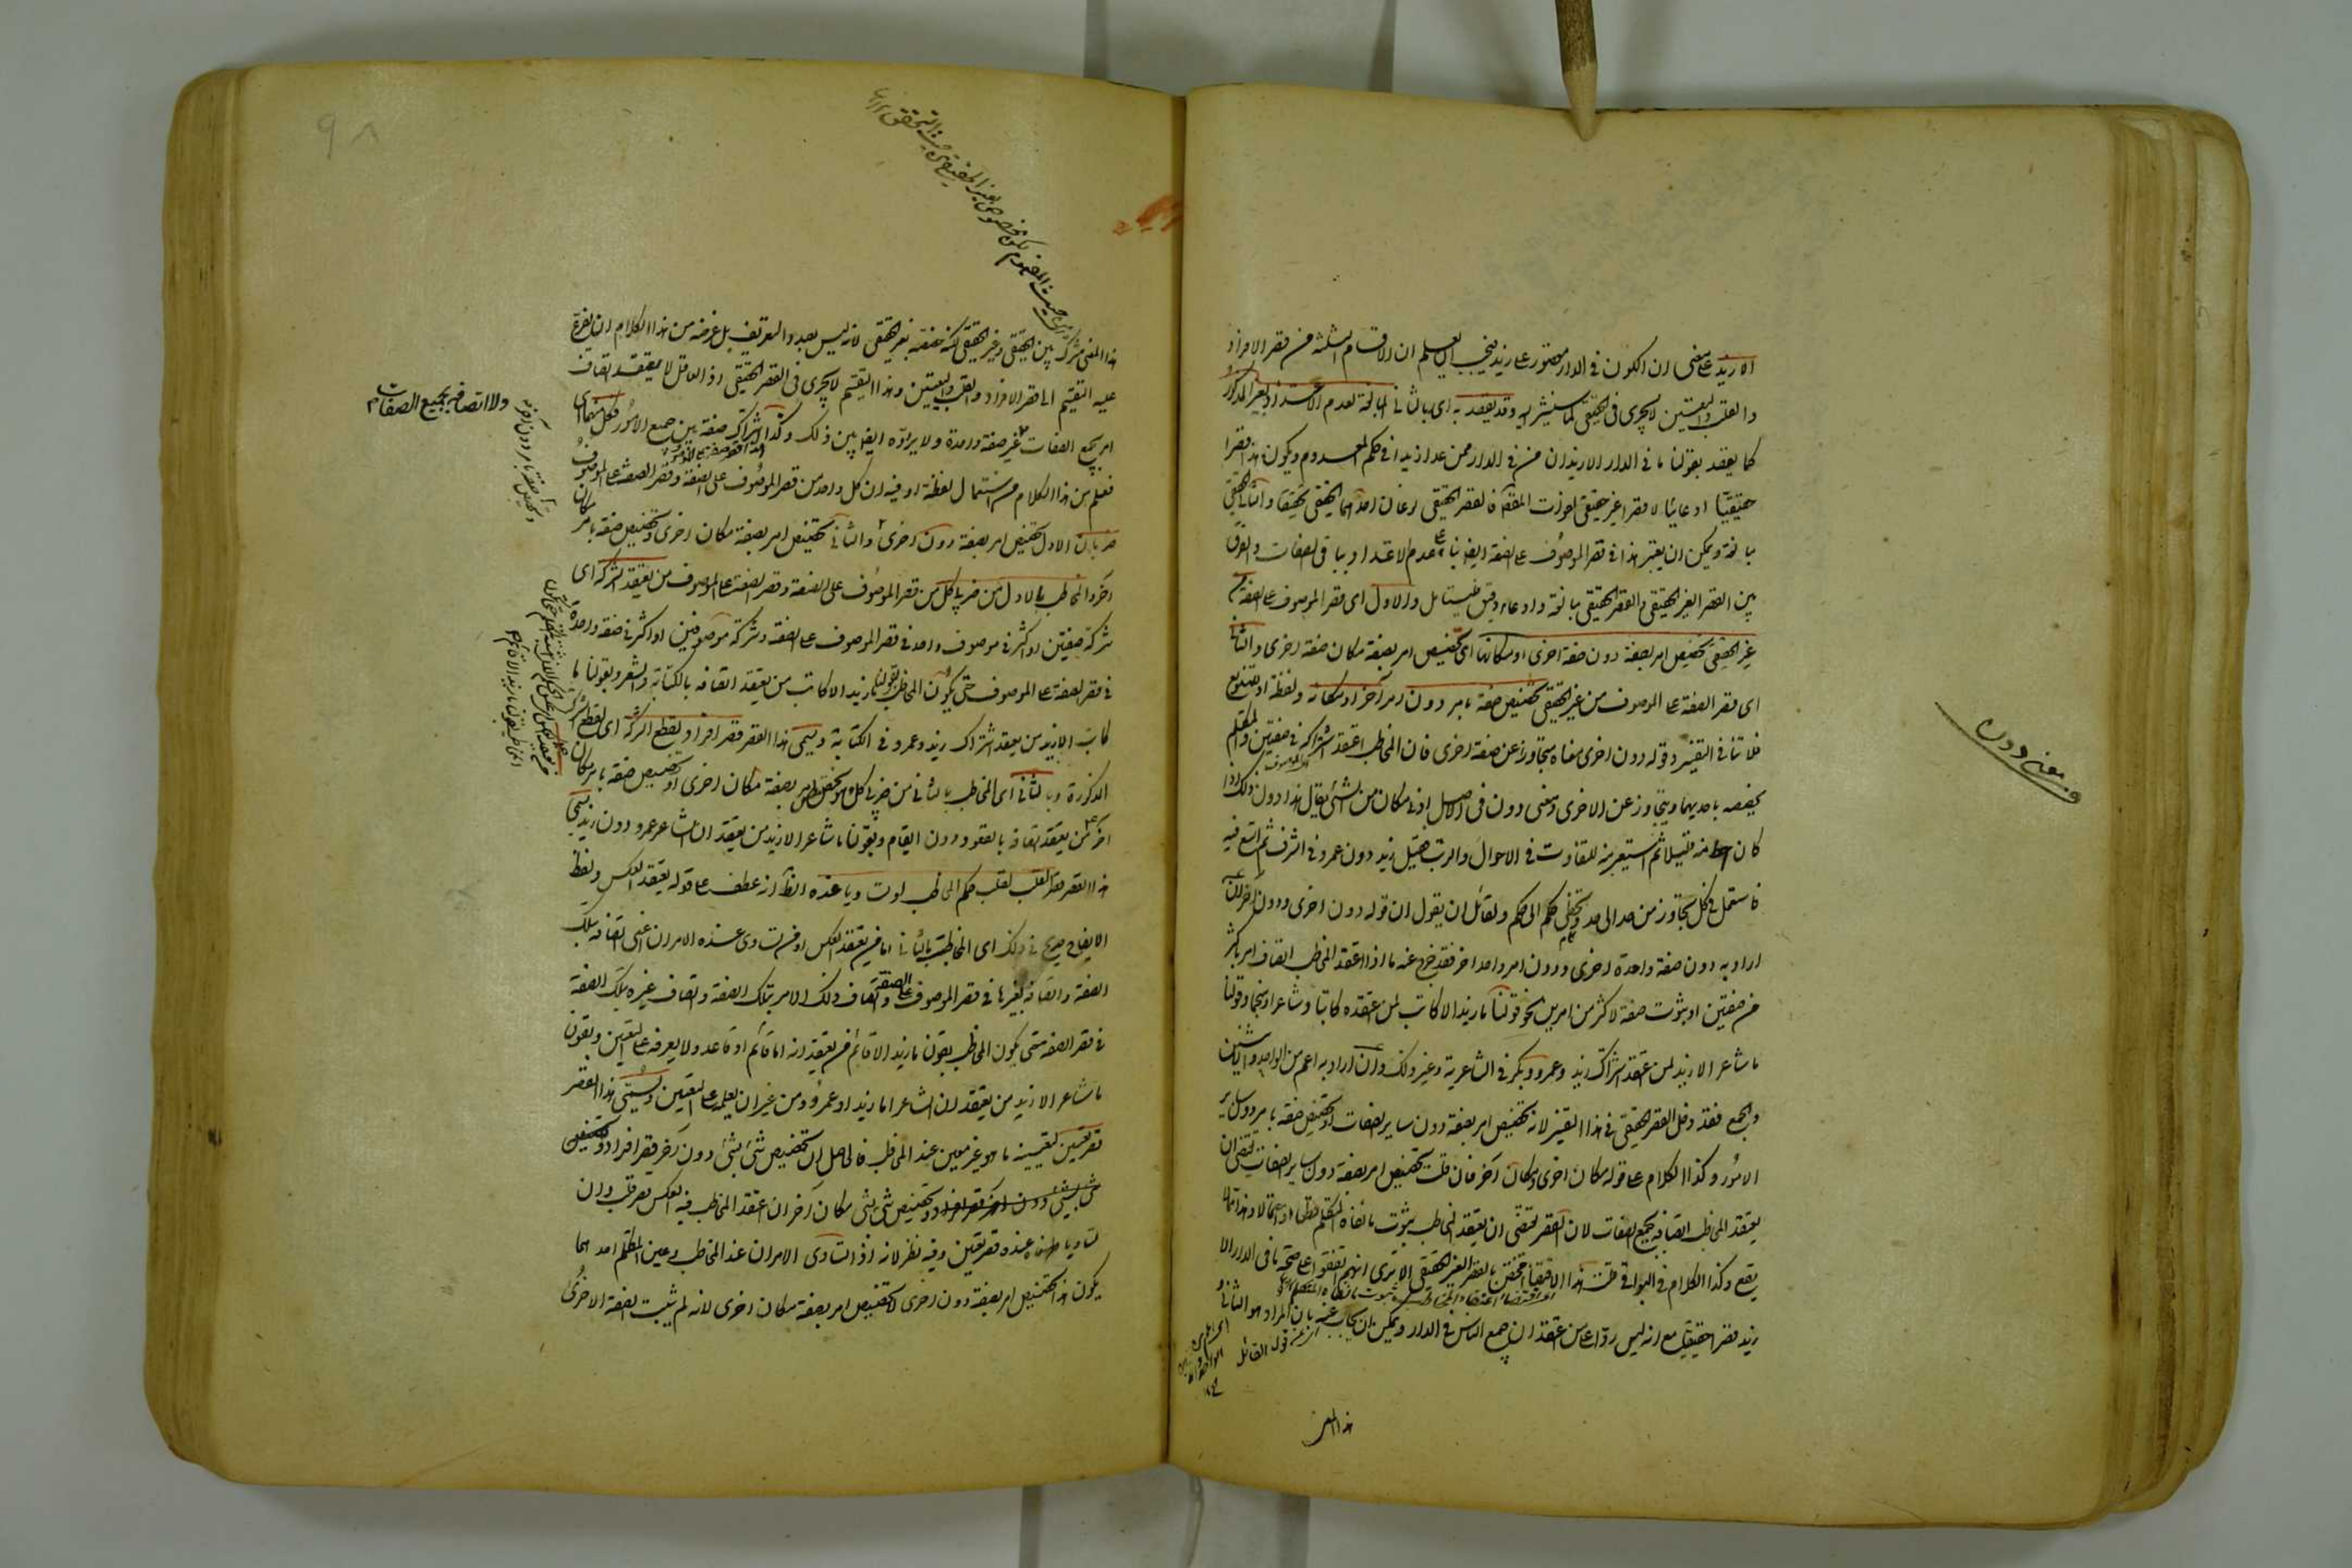 الا زيد على معنى ان الكون في الدار مقصور على زيد فيجب ان يعلم ان الاقسام الثلثة من قصر الافراد
والقلب والتعيين لا يجرى في الحقيقى كما سنشير اليه وقد يقصد به اى بالثاني المبالغة لعدم الاعتداد بغير المذكور
كما يقصد بقولنا ما في الدار الا زيد ان من في الدار ممن عدا زيدا في حكم المعدوم ويكون هذا قصرا
حقيقيا ادعائيا لا قصرا غير حقيقى
مبالغة ويمكن ان يعتبر هذا في قصر الموصوف على الصفة ايضا بناء على عدم الاعتداد بباقي الصفات والفرق
بين القصر الغير الحقيقى والقصر الحقيقى مبالغة وادعاء دقيق فليتأمل والاول اى قصر الموصوف على الصفة من
غير الحقيقى تخصيص امر بصفة دون صفة اخرى او مكانها اى تخصيص امر بصفة مكان صفة اخرى والثاني
اى قصر الصفة على الموصوف من غير الحقيقى تخصيص صفة بامر دون امر آخر او مكانه ولفظة او للتنويع
فلا تنافي التفسير وقوله دون اخرى معناه متجاوزا عن صفة اخرى فان المخاطب اعتقد اشتراكه في صفتين والمتكلم
يخصصه باحديهما ويتجاوز عن الاخرى ومعنى دون في الاصل ادنى مكان من الشئ يقال هذا دون ذلك اذا
كان احط منه قليلا ثم استعير منه للتفاوت في الاحوال والرتب فقيل زيد دون عمرو في الشرف ثم اتسع فيه
فاستعمل في كل تجاوز من حد الى حد وتخطى حكم الى حكم ولقائل ان يقول ان قوله دون اخرى ودون آخر ان
اراد به دون صفة واحدة اخرى ودون امر واحد اخر فقد خرج عنه ما اذا اعتقد المخاطب اتصاف امر باكثر
من صفتين او ثبوت صفة لاكثر من امرين نحو قولنا ما زيد الا كاتب لمن اعتقده كاتبا وشاعرا ومنجما وقولنا
ما شاعر الا زيد لمن اعتقد اشتراك زيد وعمرو وبكر في الشاعرية وغير ذلك وان اراد به اعم من الواحد والاثنين
والجمع فقد دخل القصر الحقيقى في هذا التفسير لانه تخصيص امر بصفة دون ساير الصفات او تخصيص صفة بامر دون ساير
الامور وكذا الكلام على قوله مكان اخرى ومكان آخر فان قلت تخصيص امر بصفة دون ساير الصفات يقتضى ان
يعتقد المخاطب اتصافه بجميع الصفات لان القصر يقتضى ان يعتقد المخاطب ثبوت ما نفاه المتكلم قطعا او احتمالا وهذا مما لا
يقع وكذا الكلام في البواقي قلت هذا الاقتضاء مختص بالقصر الغير الحقيقى الا ترى انهم اتفقوا على صحة ما في الدار الا
زيد قصرا حقيقيا مع انه ليس ردا على من اعتقد ان جميع الناس في الدار ويمكن ان يجاب عنه بان المراد هو الثاني و
هذا المعنى
معنى دون
هذا المعنى مشترك بين الحقيقى وغير الحقيقى لكنه خصصه بغير الحقيقى لانه ليس بصدد التعريف بل غرضه من هذا الكلام ان يفرع
عليه التقسيم الى قصر الافراد والقلب والتعيين وهذا التقسيم لا يجرى في القصر الحقيقى اذ العاقل لا يعتقد اتصاف
امر بجميع الصفات غير صفة واحدة ولا يردده ايضا بين ذلك وكذا اشتراك صفة بين جميع الامور فكل منهما اى
فعلم من هذا الكلام من استعمال لفظة او فيه ان كل واحد من قصر الموصوف على الصفة وقصر الصفة على الموصوف
ضربان الاول تخصيص امر بصفة دون اخرى والثاني تخصيص امر بصفة مكان اخرى وتخصيص صفة بامر مكان
آخر والمخاطب بالاول من ضربى كل من قصر الموصوف على الصفة وقصر الصفة على الموصوف من يعتقد الشركة اى
شركة صفتين او اكثر في موصوف واحد في قصر الموصوف على الصفة وشركة موصوفين او اكثر في صفة واحدة
في قصر الصفة على الموصوف حتى يكون المخاطب بقولنا ما زيد الا كاتب من يعتقد اتصافه بالكتابة والشعر وبقولنا ما
كاتب الا زيد من يعتقد اشتراك زيد وعمرو في الكتابة ويسمى هذا القصر قصر افراد لقطع الشركة اى لقطع الشركة
المذكورة وبالثاني اى المخاطب بالثاني من ضربى كل اعنى تخصيص امر بصفة مكان اخرى او تخصيص صفة بامر مكان
آخر من يعتقد اتصافه بالقعود دون القيام وبقولنا ما شاعر الا زيد من يعتقد ان الشاعر عمرو دون زيد ويسمى
هذا القصر قصر القلب لقلب حكم المخاطب او تساويا عنده الظاهر انه عطف على قوله يعتقد العكس ولفظ
الايضاح صريح في ذلك اى المخاطب بالثاني اما من يعتقد العكس او من تساوى عنده الامران اعنى اتصافه بتلك
الصفة واتصافه بغيرها في قصر الموصوف على الصفة واتصاف ذلك الامر بتلك الصفة واتصاف غيره بتلك الصفة
في قصر الصفة حتى يكون المخاطب بقولنا ما زيد الا قائم من يعتقد انه اما قائم او قاعد ولا يعرفه على التعيين وبقولنا
ما شاعر الا زيد من يعتقد ان الشاعر اما زيد او عمرو ومن غير ان يعلمه على التعيين ويسمى هذا القصر
قصر تعيين لتعيينه ما هو غير معين عند المخاطب فالحاصل ان تخصيص شئ بشئ دون آخر قصر افراد وتخصيص
شئ بشئ دون آخر قصر افراد وتخصيص شئ بشئ مكان آخر ان اعتقد المخاطب فيه العكس قصر قلب وان
تساويا عنده قصر تعيين وفيه نظر لانه اذا تساوى الامران عند المخاطب وعين المتكلم احدهما
يكون هذا تخصيص امر بصفة دون اخرى لا تخصيص امر بصفة مكان اخرى لانه لم يثبت الصفة الاخرى
ولا اتصافه بجميع الصفات
٩٨